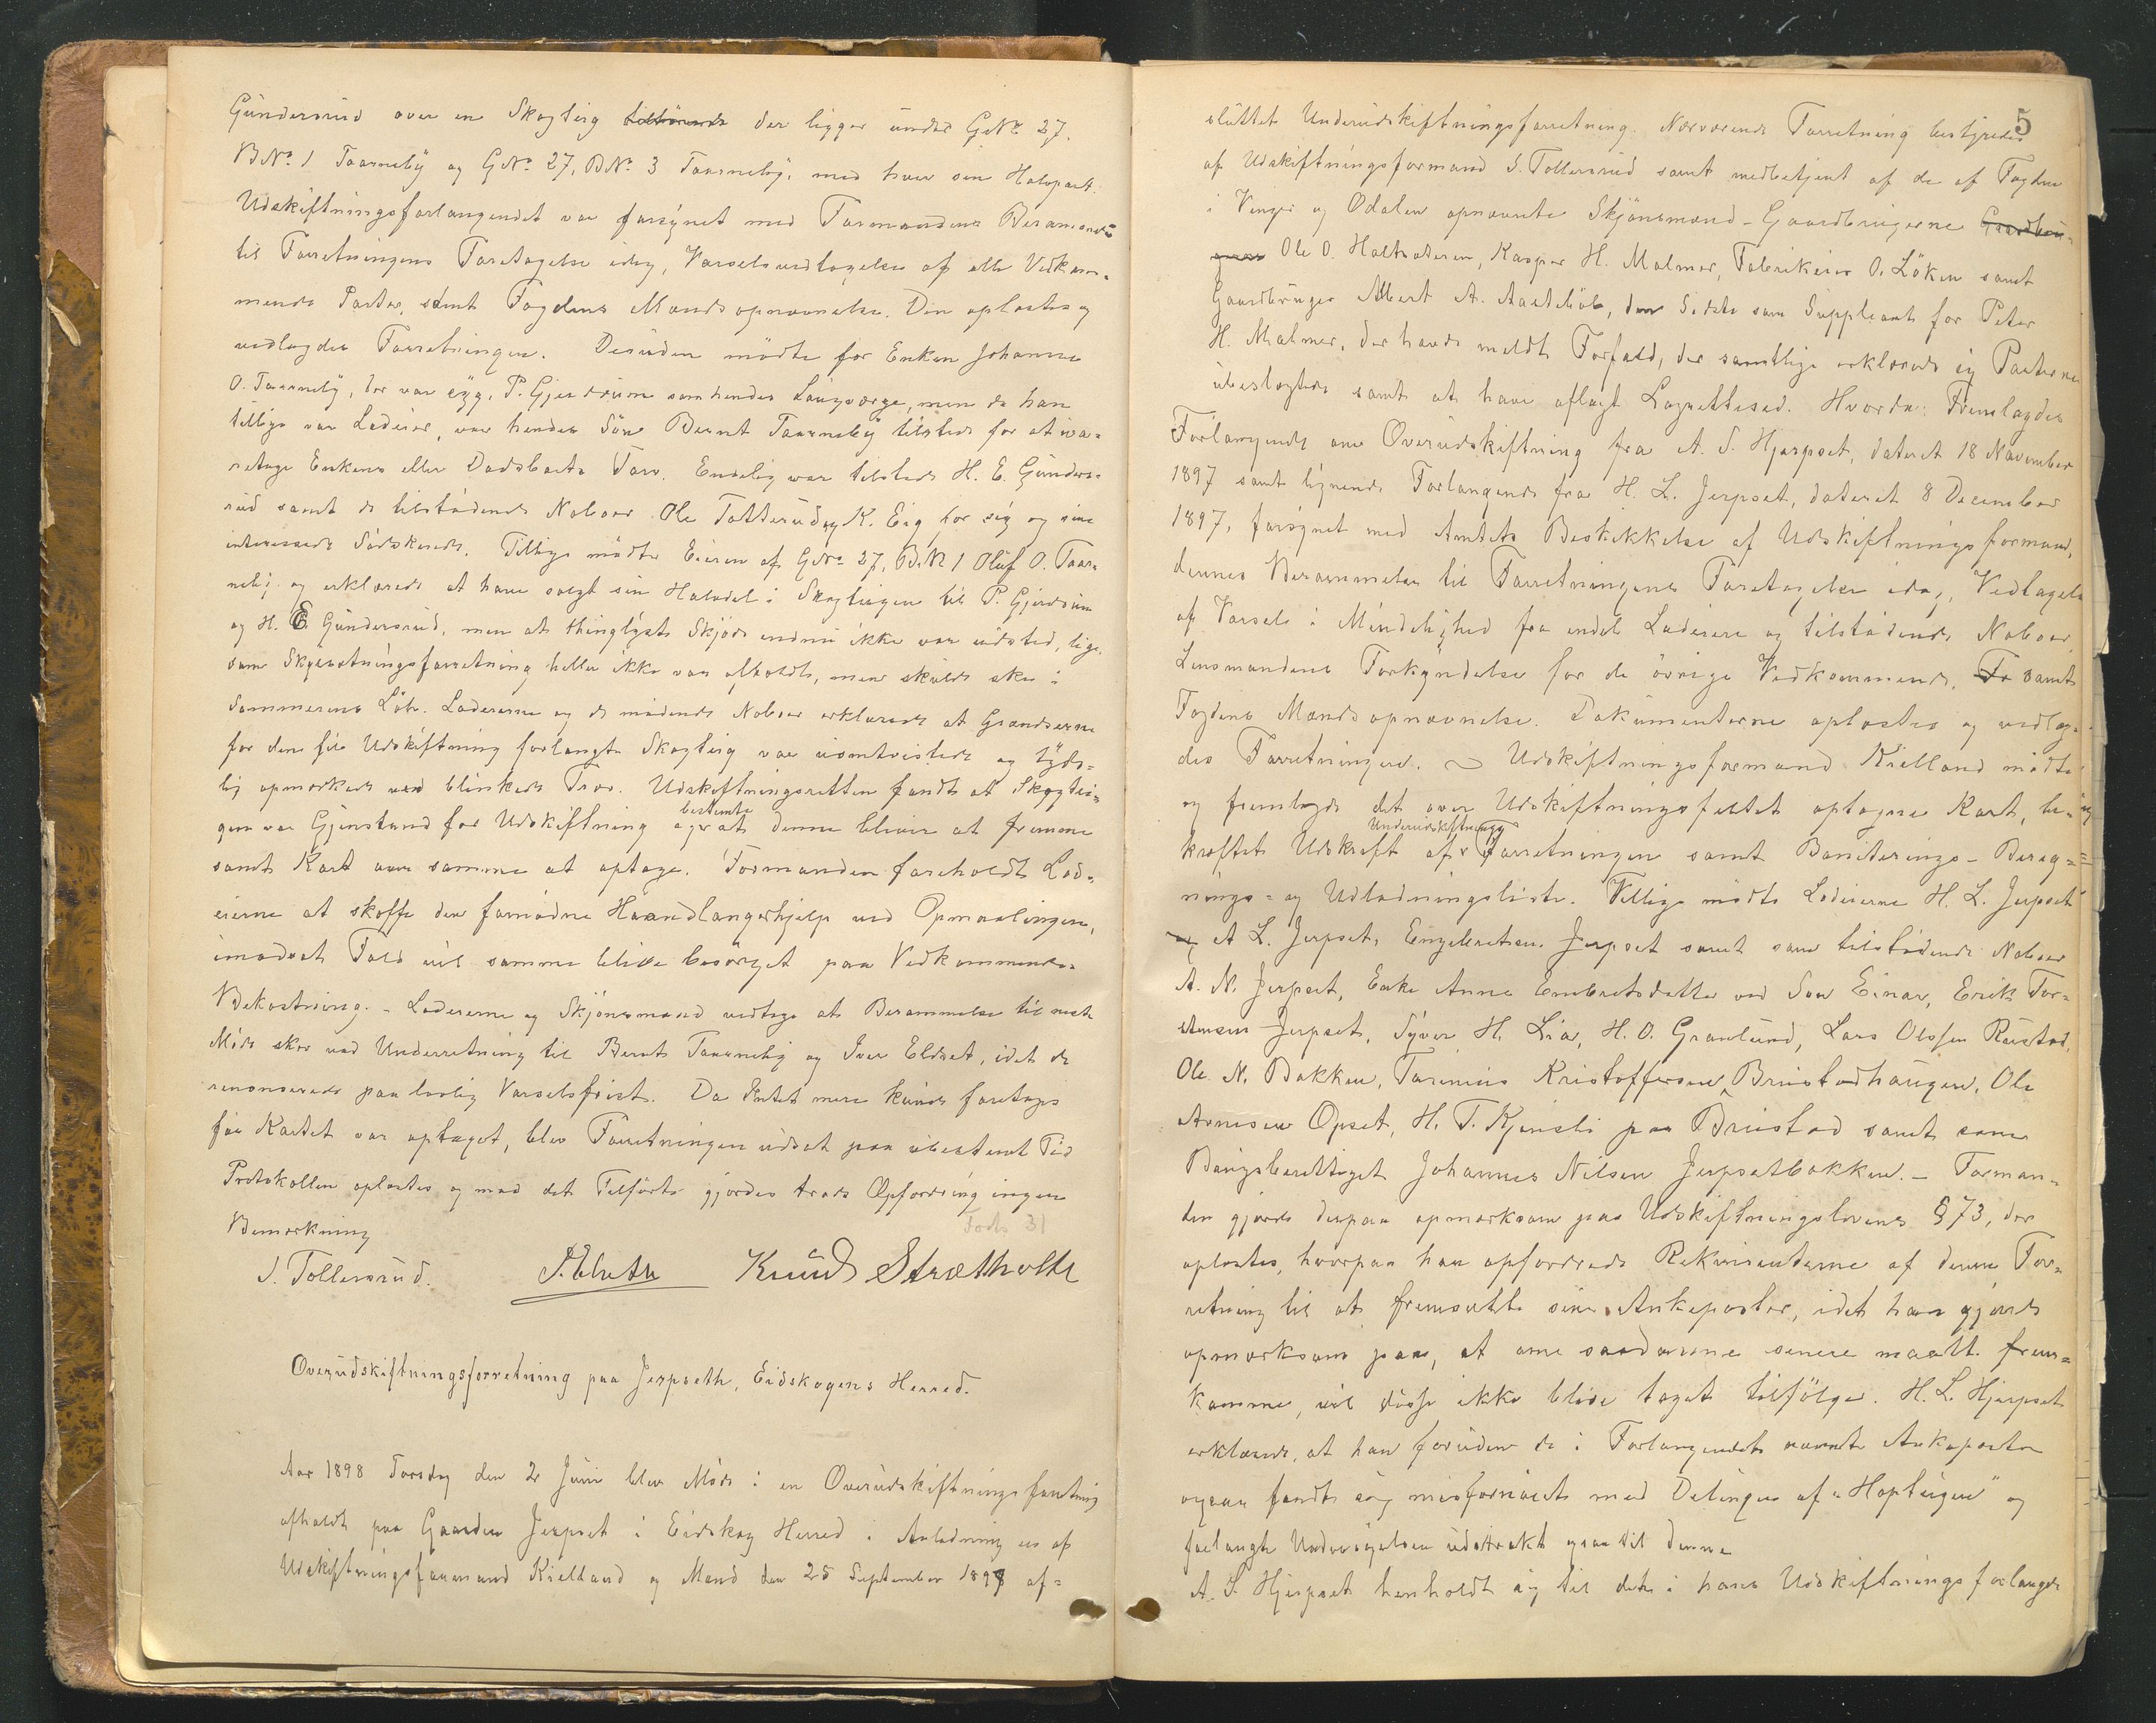 Gundersrud over en Skogteig tilhørende der ligger under GNo 27.
BNo 1 Taarneby og GNo 27, BNo 3 Taarneby, med hver sin Halvpart.
Udskiftningsforlangendet var forsynet med Formandens Berammelse
til Forretningens Foretagelse idag, Varselsvedtagelse af alle Vedkom-
mende Parter, samt Fogdens Mændsopnævnelse. Den oplæstes og
vedlagdes Forretningen. Desuden mødte for Enken Johanne
O. Taarneby, der var syg, P. Gjerdrum som hendes Laugværge, men da han
tillige var Lodeier, var hendes Søn Bernt Taarneby tilstede for at iva-
retage Enkens eller Dødsboets Tarv. Endelig var tilstede H. E. Gunders-
rud samt de tilstødende Naboer Ole Totterud og K. Eig for sig og sine
interesserede Sødskende. Tillige mødte Eieren af GNo 27, BNo 1 Oluf O. Taar-
neby og erklærede at have solgt sin Halvdel i Skogteigen til P. Gjerdrum
og H. E Gundersrud, men at thinglyst Skjøde endnu ikke var udsted, lige-
som Skylsætningsforretning heller ikke var afholdt, men skulde ske i
Sommerens Løb. Lodeierne og de mødende Naboer erklærede at Grændserne
for den til Udskiftning forlangte Skogteig var uomtvistede og tyde-
lig opmerkede ved blinkede Trær. Udskiftningsretten fandt at Skogtei-
gen var Gjenstand for Udskiftning og bestemte at denne bliver at fremme
samt Kart over samme at optage. Formanden foreholdt Lod-
eierne at skaffe den fornødne Haandlangerhjelp ved Opmaalingen,
imodsat Fald vil samme blive besørget paa Vedkommendes
Bekostning. - Lodeierne og Skjønsmænd vedtoge at Berammelse til neste
Møde sker ved Underretning til Bernt Taarneby og Iver Eldset, idet de
renoncerede paa lovlig Varselsfrist. Da Intet mere kunde foretages
før Kartet var optaget, blev Forretningen udsat paa ubestemt Tid
Protokollen oplæstes og mod det Tilførte gjordes trods Opfordring ingen
Bemærkning
Forts 31
S. Tollersrud. Knud Strætkvelle
Overudskiftningsforretning paa Jerpseth, Eidskogens Herred.
Aar 1898 Torsdag den 2 Juni blev Møde i en Overudskiftningsforretning
afholdt paa Gaarden Jerpset i Eidskog Herred i Anledning en af
Udskiftningsformand Kielland og Mænd den 25 September 1897 af-
5
sluttet Underudskiftningsforretning. Nærværende Forretning bestyredes
af Udskiftningsformand S. Tollersrud samt medbetjent af de af Fogden
i Vinger og Odalen opnævnte Skjønsmænd - Gaardbrugerne Gaardbru-
gerne Ole O. Holtsodersen, Kasper H. Malmer, Fabrikeier O. Løken samt
Gaardbruger Albert A. Aasteböl, den Sidste som Suppleant for Peter
H. Malmer, der havde meldt Forfald, der samtlige erklærede sig Parterne
ubeslægtede samt at have aflagt Lagrettesed. Hvorda: Fremlagdes
Forlangende om Overudskiftning fra A. S. Hjerpset, dateret 18 November
1897 samt lignende Forlangende fra H. L. Jerpset, dateret 8 December
1897, forsynet med Amtets Beskikkelse af Udskiftningsformand,
dennes Berammelse til Forretningens Foretagelse idag, Vedtagelse
af Varsel i Mindelighed fra endel Lodeiere og tilstødende Naboer,
Lensmandens Forkyndelse for de øvrige Vedkommende, Fo samt
Fogdens Mændsopnævnelse. Dokumenterne oplæstes og vedlag-
des Forretningen. ~ Udskiftningsformand Kielland mødte
og fremlagde det over Udskiftningsfeltet optagne Kart, be-
kræftet Udskrift af Underudskiftnings Forretningen samt Boniterings- Bereg-
nings- og Udlodningsliste. Tillige mødte Lodeierne H. L. Jerpset
og A L. Jerpset, Engebretsen Jerpset samt som tilstødende Naboer
A. N. Jerpset, Enke Anne Embretsdatter ved Søn Einar, Erik Tor-
stensen Jerpset, Syver H. Lia, H. O. Granlund, Lars Olssen Rustad,
Ole N. Bakken, Torinius Kristoffersen Brustadhaugen, Ole
Arnesen Opset, H. T. Kjensli paa Brustad samt som
Brugsberettiget Johannes Nilsen Jerpsetbakken. - Forman-
den gjorde derpaa opmærksom paa Udskiftningslovens § 73, der
oplæstes, hvorpaa han opfordrede Rekvirenterne af denne For-
retning til at fremsætte sine Ankeposter, idet han gjorde
opmærksom paa, at om saadanne senere maatte frem-
komme, vil disse ikke blive taget tilfølge. H. L. Hjerpset
erklærede, at han foruden de i Forlangendet nævnte Ankeposter
ogsaa fandt sig misfornøiet med Delingen af "Hopteigen" og
forlangte Undersøgelsen udstrakt ogsaa til denne
A. S. Hjerpset henholdt sig til det i hans Udskiftningsforlangende